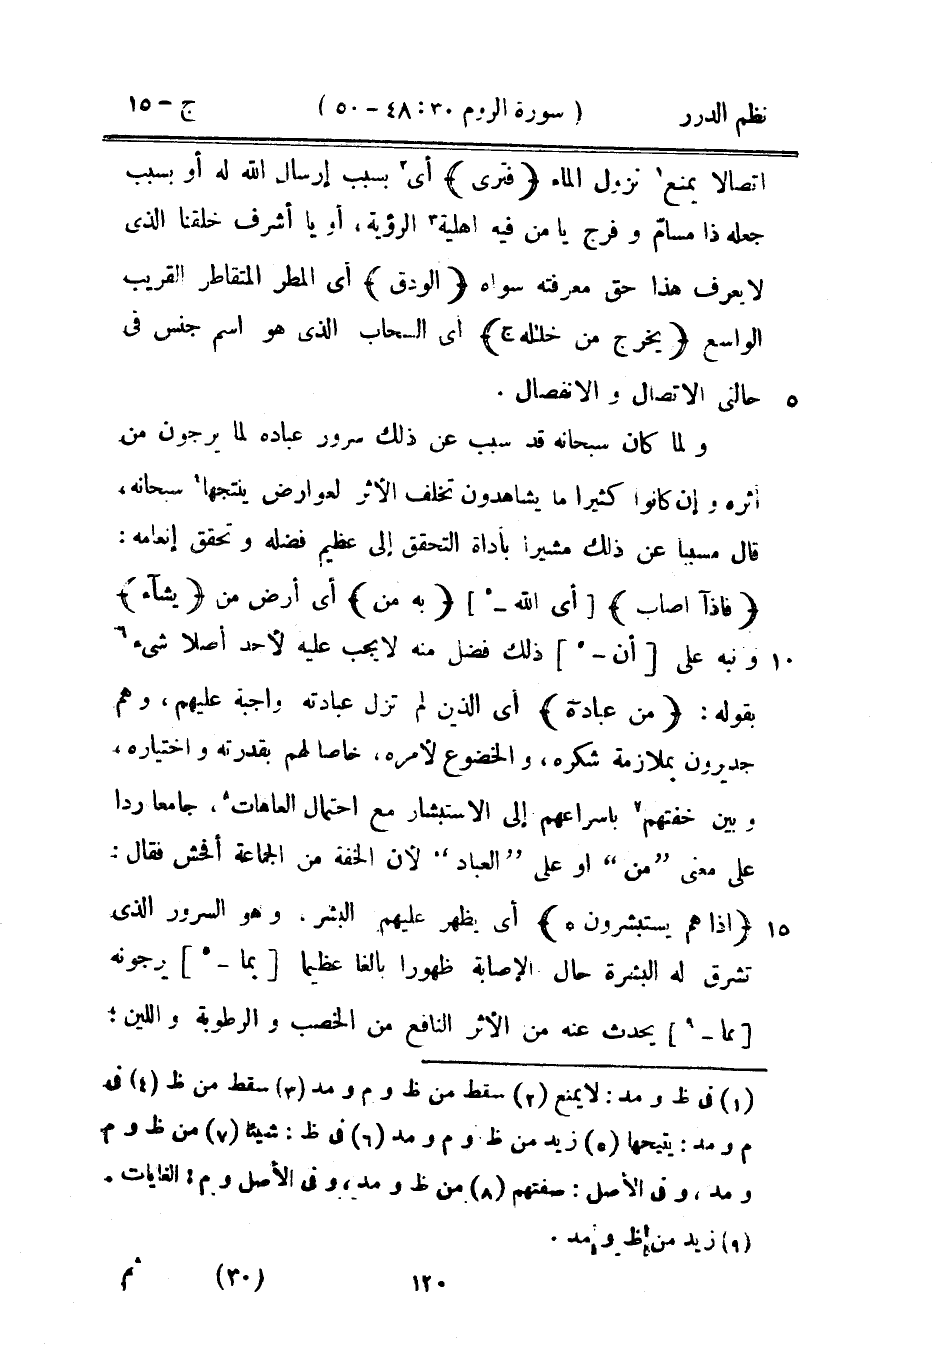 نظم الدرر ( سورة الروم ٣٠ : ٤٨ - ٥٠ ) ج - ١٥
اتصالا يمنع١ نزول الماء ﴿ فترى ﴾ أى٢ بسبب إرسال الله له أو بسبب
جعله ذا مسامّ و فرج يا من فيه اهلية٣ الرؤية، أو يا أشرف خلقنا الذى
لا يعرف هذا حق معرفته سواه ﴿ الودق ﴾ أى المطر المتقاطر القريب
الواسع ﴿ يخرج من خلٰله ج﴾ أى السحاب الذى هو اسم جنس فى
٥ حالتى الاتصال و الانفصال .
و لما كان سبحانه قد سبب عن ذلك سرور عباده لما يرجون من
أثره و إن كانوا كثيرا ما يشاهدون تخلف الأثر لعوارض ينتجها٤ سبحانه،
قال مسببا عن ذلك مشيرا بأداة التحقق إلى عظيم فضله و تحقق إنعامه :
﴿ فاذآ اصاب ﴾ [ أى الله - ٥ ] ﴿ به من ﴾ أى أرض من ﴿ يشآء ﴾
١٠ و نبه على [ أن - ٥ ] ذلك فضل منه لا يجب عليه لأحد أصلا شىء٦
بقوله : ﴿ من عبادهٓ ﴾ أى الذين لم تزل عبادته واجبة عليهم، و هم
جديرون بملازمة شكره، و الخضوع لأمره، خاصا لهم بقدرته و اختياره،
و بين خفتهم٧ باسراعهم إلى الاستبشار مع احتمال العاهات٨، جامعا ردا
على معنى ”من“ او على ”العباد“ لأن الخفة من الجماعة أفحش فقال :
١٥ ﴿ اذا هم يستبشرون ه ﴾ أى يظهر عليهم البشر، و هو السرور الذى
تشرق له البشرة حال الإصابة ظهورا بالغا عظيما [ بما - ٥ ] يرجونه
[ مما - ٩ ] يحدث عنه من الأثر النافع من الخصب و الرطوبة و اللين ؛
(١) فى ظ و مد : لا يمنع (٢) سقط من ظ و م و مد (٣) سقط من ظ (٤) فى
م و مد : يتيحها (٥) زيد من ظ و م و مد (٦) فى ظ : شيئا (٧) من ظ و م
و مد، و فى الأصل : صفتهم (٨) من ظ و مد، و فى الأصل و م : الغايات .
(٩) زيد من ظ و مد .
١٢٠ (٣٠) ثم